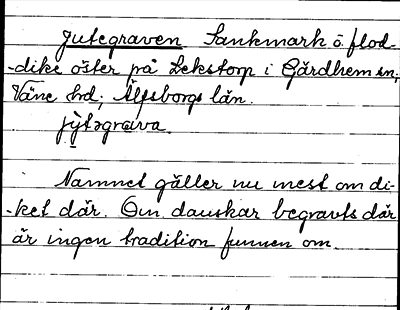 Jutegraven Sankmark o. flod-
-dike öster på Lekstorp i Gärdhem sn,
Väne hd; Älfsborgs län.
jy̆təgrava.
Namnet gäller nu mest om di-
-ket där. Om danskar begravts där
är ingen tradition funnen om.